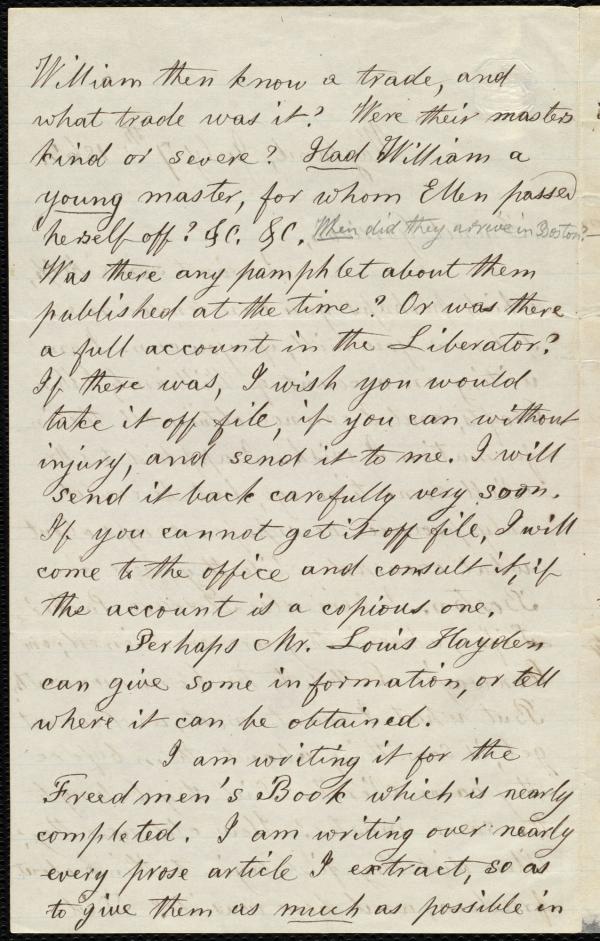 William then know a trade, and
what trade was it? Were their masters
kind or severe? Had William a
young master, for whom Ellen passed
herself off? &c. &c. When did they arrive in Boston?
Was there any pamphlet about them
published at the time? Or was there
a full account in the Liberator?
If there was, I wish you would
take it off file, if you can without
injury, and send it to me. I will
send it back carefully very soon.
If you cannot get it off file, I will
come to the office and consult it, if
the account is a copious one.
Perhaps Mr. Louis Hayden
can give some information, or tell
where it can be obtained.
I am writing it for the
Freedmen's Book which is nearly
completed. I am writing over nearly
every prose article I extract, so as
to give them as much as possible in